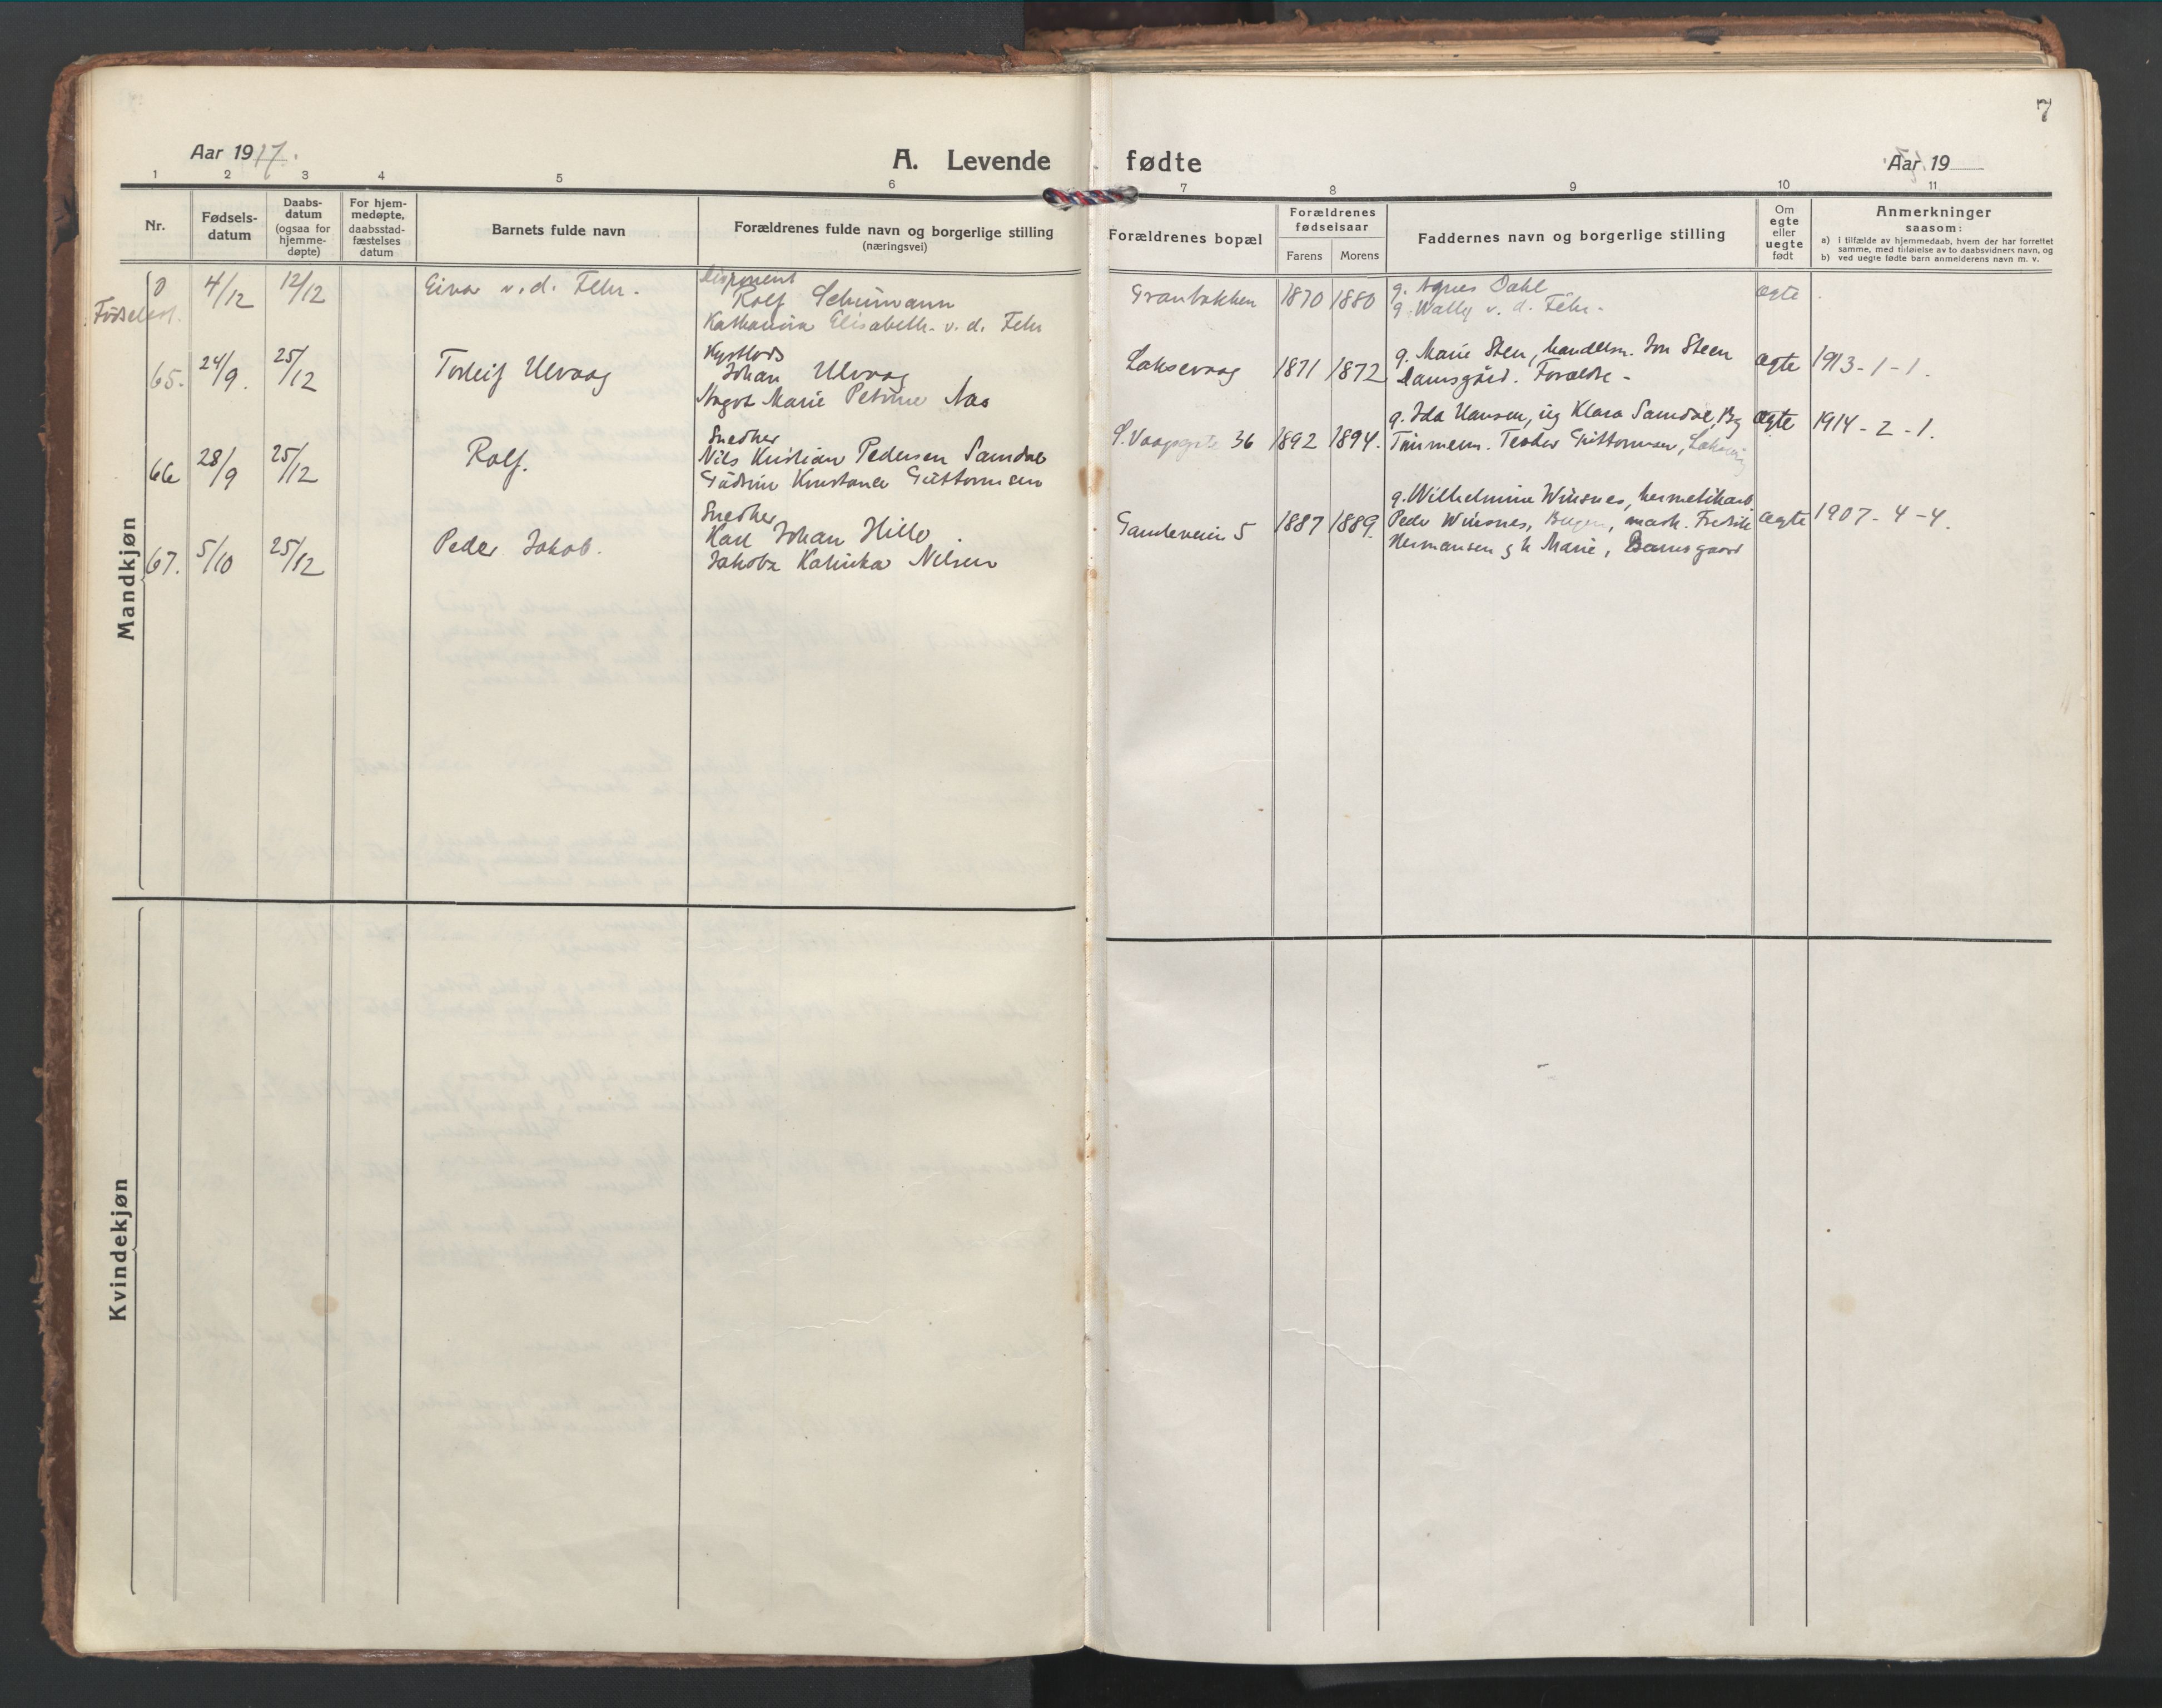 7
Aar 1917.
A. Levende fødte
Aar 19
1 2 3 4 5 6 7 8 9 10 11
Nr.
Fødsels-
datum
Daabs-
datum
(ogsaa for
hjemme-
døpte)
For hjem-
medøpte,
daabsstad-
fæstelses
datum
Barnets fulde navn
Forældrenes fulde navn og borgerlige stilling
(næringsvei)
Forældrenes bopæl
Forældrenes
fødselsaar
Farens Morens
Faddernes navn og borgerlige stilling
Om
egte
eller
uegte
født
Anmerkninger
saasom:
a) i tilfælde av hjemmedaab, hvem der har forrettet
samme, med tilføielse av to daabsvidners navn, og
b) ved uegte fødte barn anmelderens navn m. v.
Mandkjøn
0
Fødselsst.
4/12 12/12 v. d. Fehr.
Disponent
Rolf Schumann
Katharina Elisabeth v. d. Fehr
Granbakken 1870 1880
g. Agnes Dahl
g. Wally v. d. Fehr.
ægte
65. 24/9. 25/12 Torleif Ulvaag
Kystlods
Johan Ulvaag
Marie Petrine Aas
Laksevaag 1871 1872
g. Marie Steen, handelsm. Jon Steen
Damsgård. Forældre -
ægte 1913 - 1 - 1.
66 28/9 25/12 Rolf.
Snedker
Nils Kristian Pedersen Samdal
Konstance Guttormsen
36 1892 1894.
g. Ida Hansen, ug Klara Samdal, By
Tømmerm. Teodor Guttormsen,
ægte 1914 - 2 - 1.
67. 5/10 25/12 Peder Jakob.
Snedker
Karl Johan Hille
Jakoba Katinka Nilsen
5 1887 1889.
g. Wilhelmine Winsnes, hermetikarb.
Peder Winsnes, Bergen, mask. Fredrik
Hermansen g h Marie, Damsgaard
ægte 1907 - 4 - 4.
Kvindekjøn